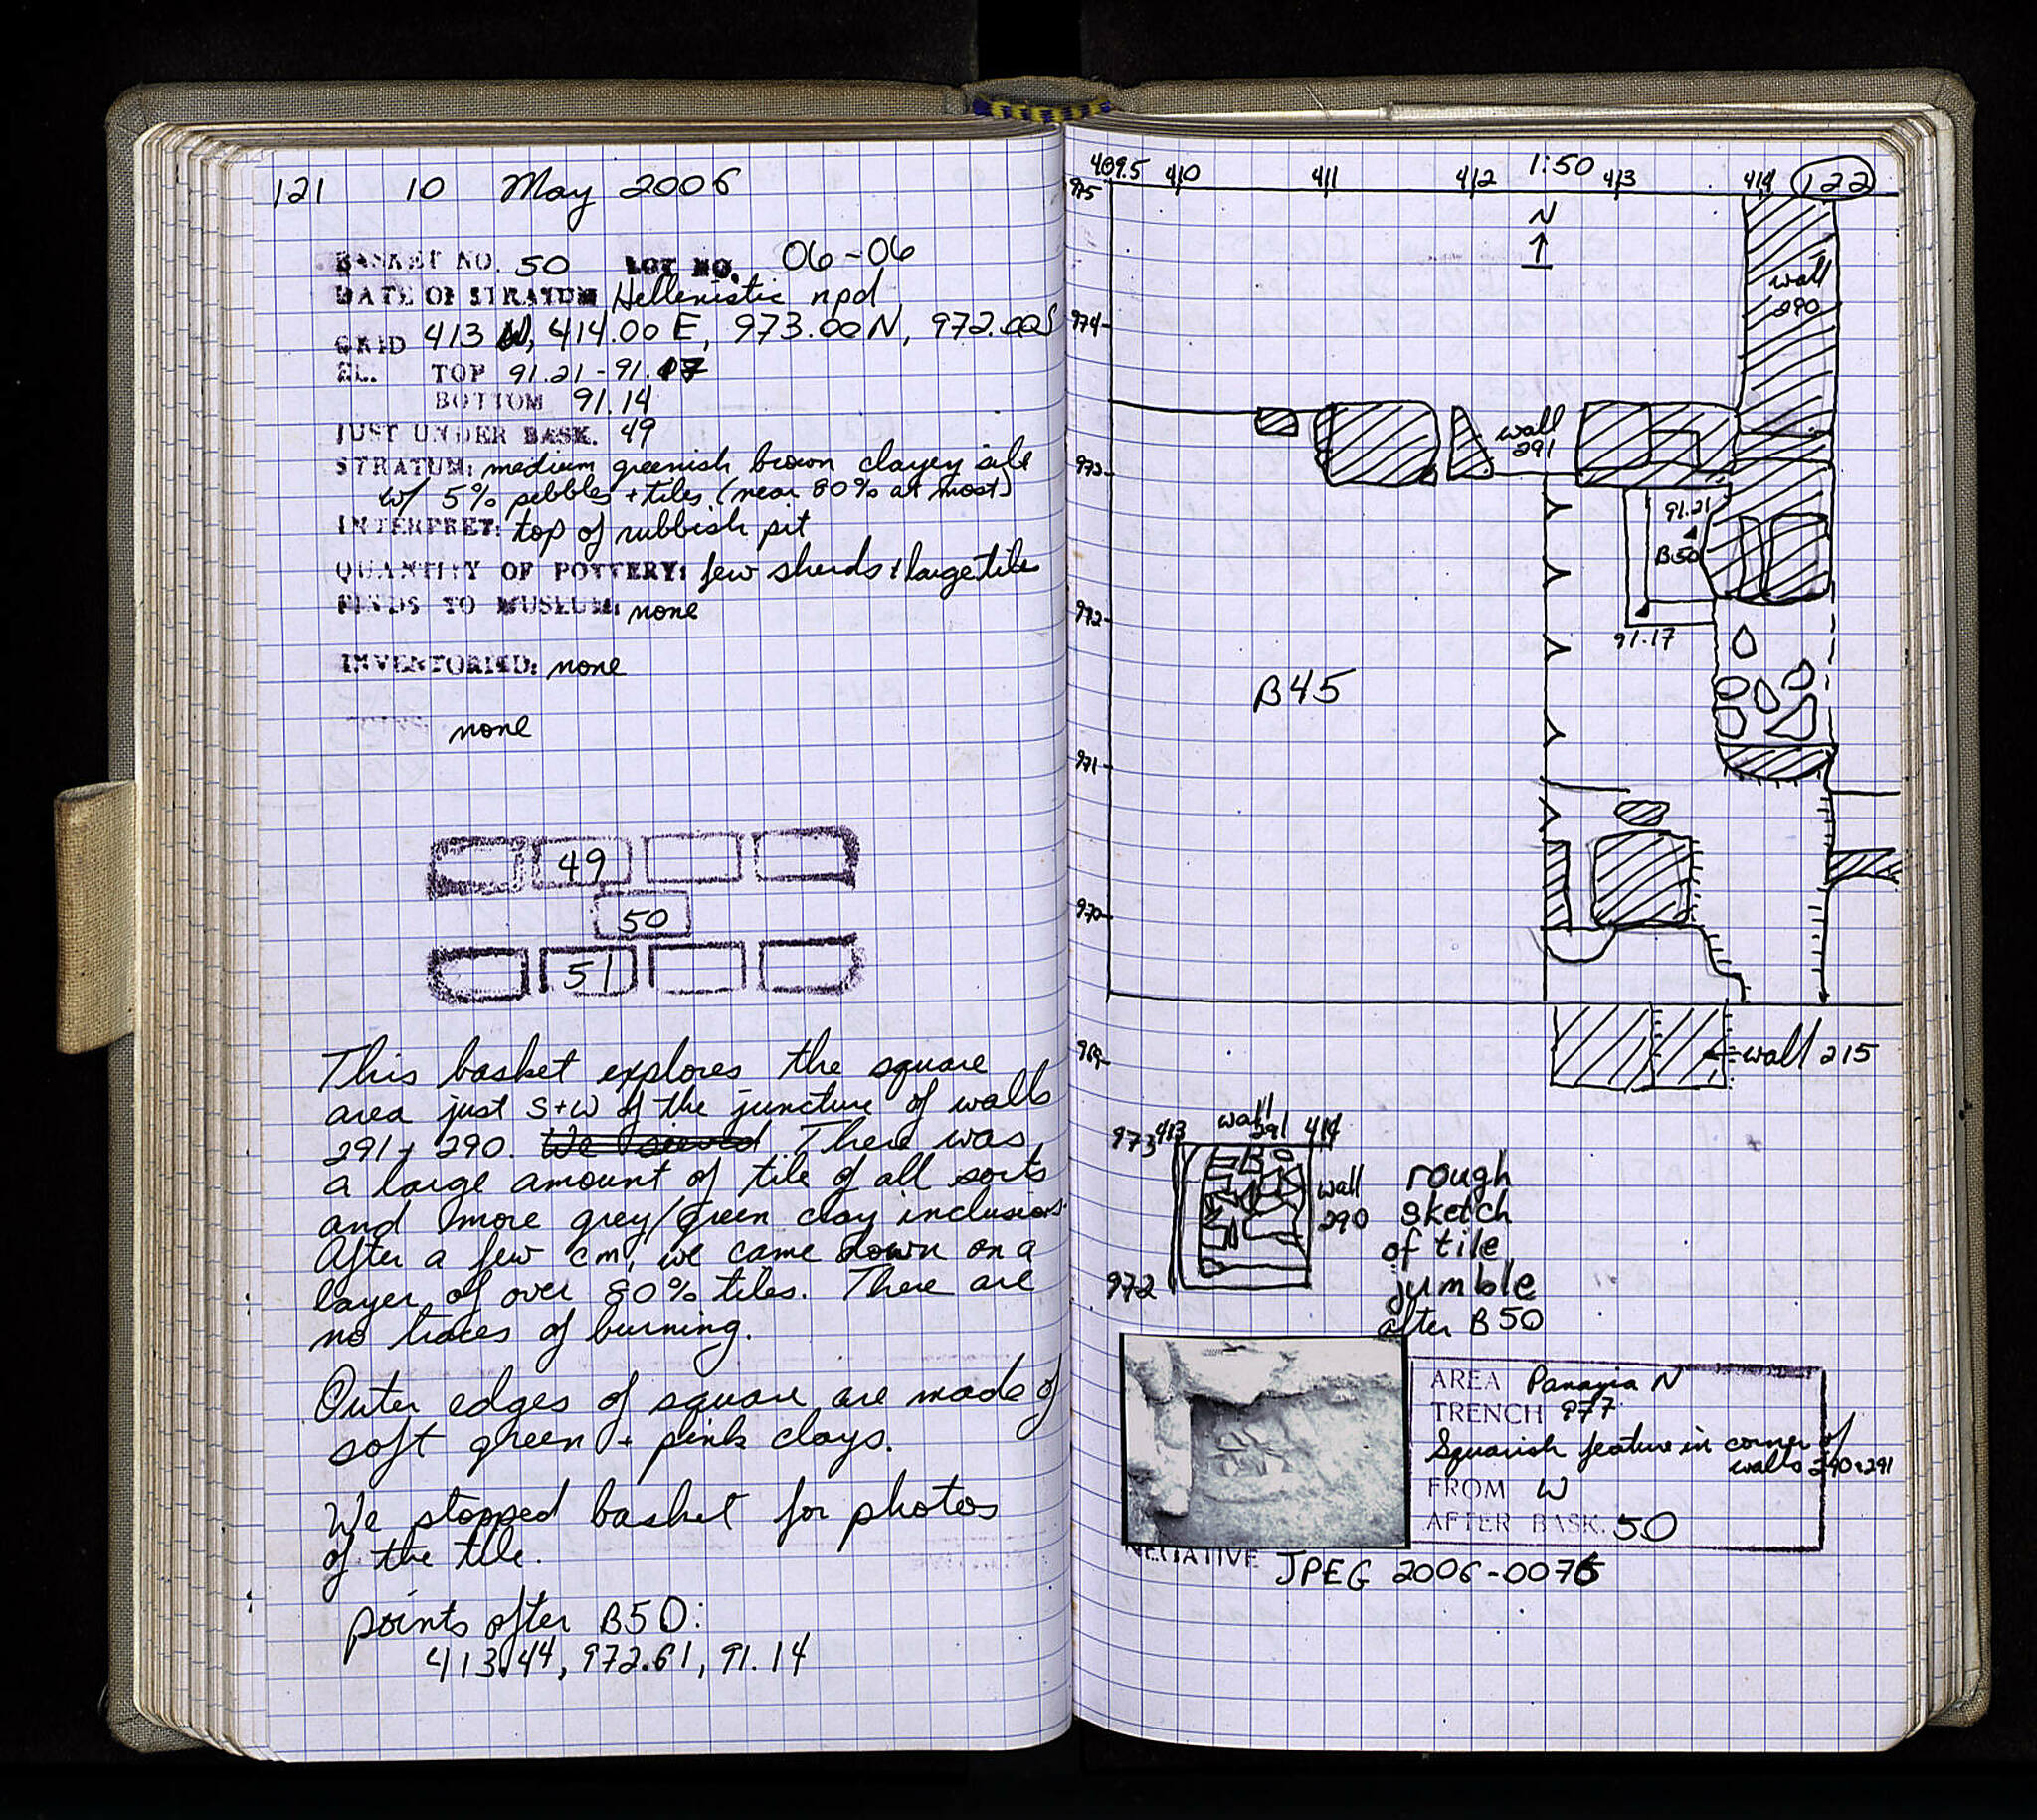 121 10 May 2006
BASKET NO. 50 LOT NO. 06-06
DATE OF STRATUM Hellenistic npd
GRID 413 W, 414.00 E, 973.00 N, 972.00 S
EL. TOP 91.21 - 91.17
BOTTOM 91.14
JUST UNDER BASK. 49
STRATUM: medium greenish brown clayey silt
w/ 5% pebbles + tiles (near 80% at most)
INTERPRET: top of rubbish pit
QUANTITY OF POTTERY: few sherds + large tile
FINDS TO MUSEUM: none
INVENTORIED: none
none
49
50
51
This basket explores the square
area just S+W of the juncture of walls
291 + 290. We sieved There was
a large amount of tile of all sorts
and more grey/green clay inclusions.
After a few cm, we came down on a
layer of over 80% tiles. There are
no traces of burning.
Outer edges of square are made of
soft green + pink clays.
We stopped basket for photos
of the tile.
points after B50:
413.44, 972.61, 91.14
409.5 410 411 412 1:50 413 414 122
975
N
wall
290
974
wall
291
973
91.21
B50
972
91.17
B45
971
970
969
wall 215
973 413 wall 291 414
wall
290
972
rough
sketch
of tile
jumble
after B50
AREA Panayia N
TRENCH 977
Squarish feature in corner of
walls 290+291
FROM W
AFTER BASK. 50
NEGATIVE JPEG 2006-0076